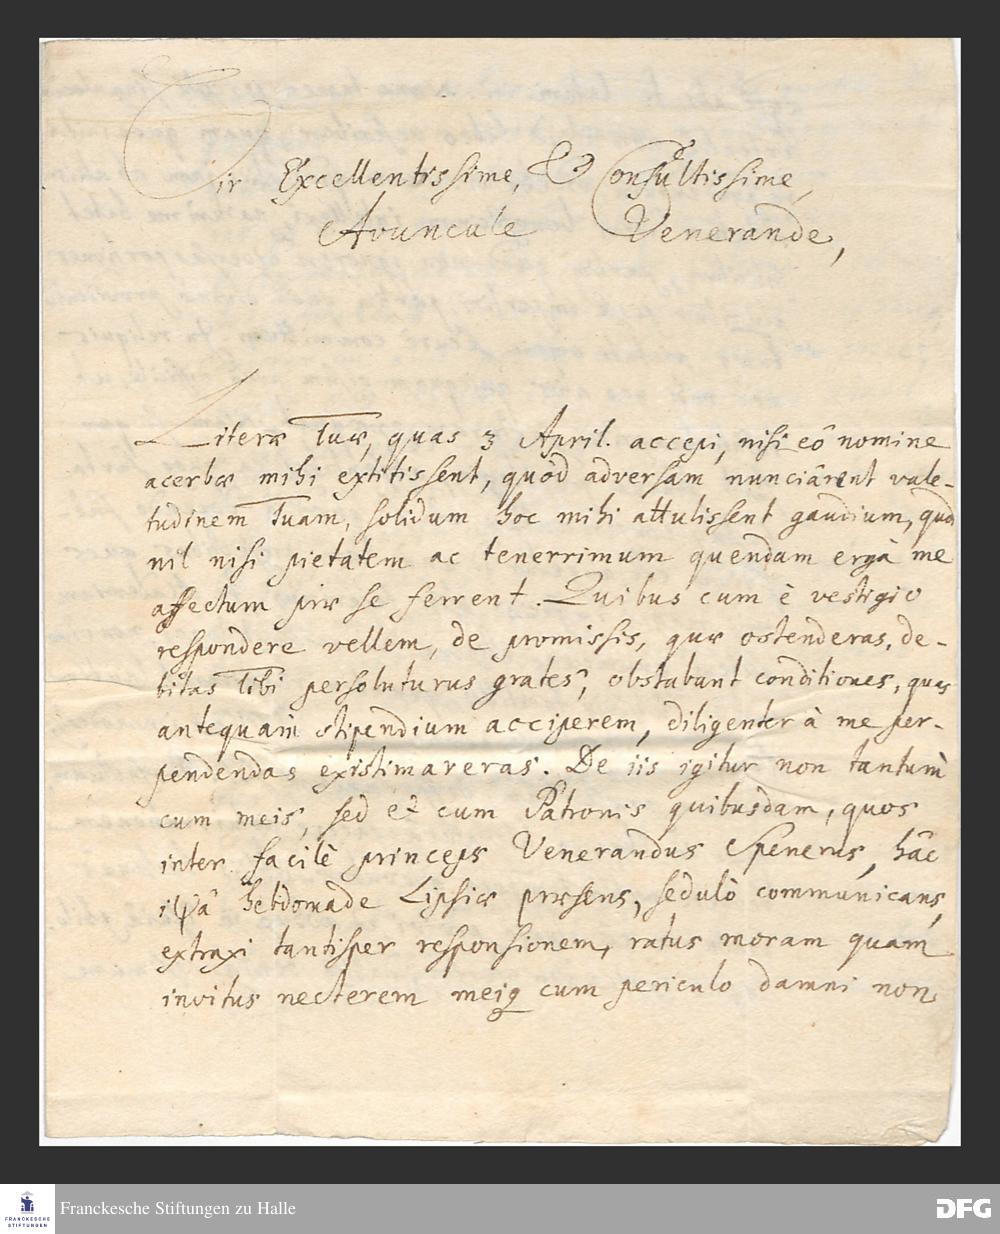 Vir Excellentissime, & Consultissime,
Avuncule Venerande,
Literæ Tuæ, quas 3 April. accepi, nisi eô nomine
acerbæ mihi extitissent, quòd adversam nunciârent vale-
tudinem Tuam, solidum hoc mihi attulissent gaudium, quod
nil nisi pietatem ac tenerrimum quendam ergà me
affectum præ se ferrent. Quibus cum è vestigio
respondere vellem, de promissis, quæ ostenderas, de-
bitas Tibi persoluturus grates, obstabant conditiones, quas
antequam stipendium acciperem, diligenter à me per-
pendendas existimaveras. De iis igitur non tantùm
cum meis, sed et cum Patronis quibusdam, quos
inter facilè princeps Venerandus Spenerus, hâc
ipsâ hebdomade Lipsiæ præsens, sedulò communicans,
extraxi tantisper responsionem, ratus moram quam
invitus necterem meiq cum periculo damni non
Franckesche Stiftungen zu Halle
FRANCKESCHE
STIFTUNGEN
DFG